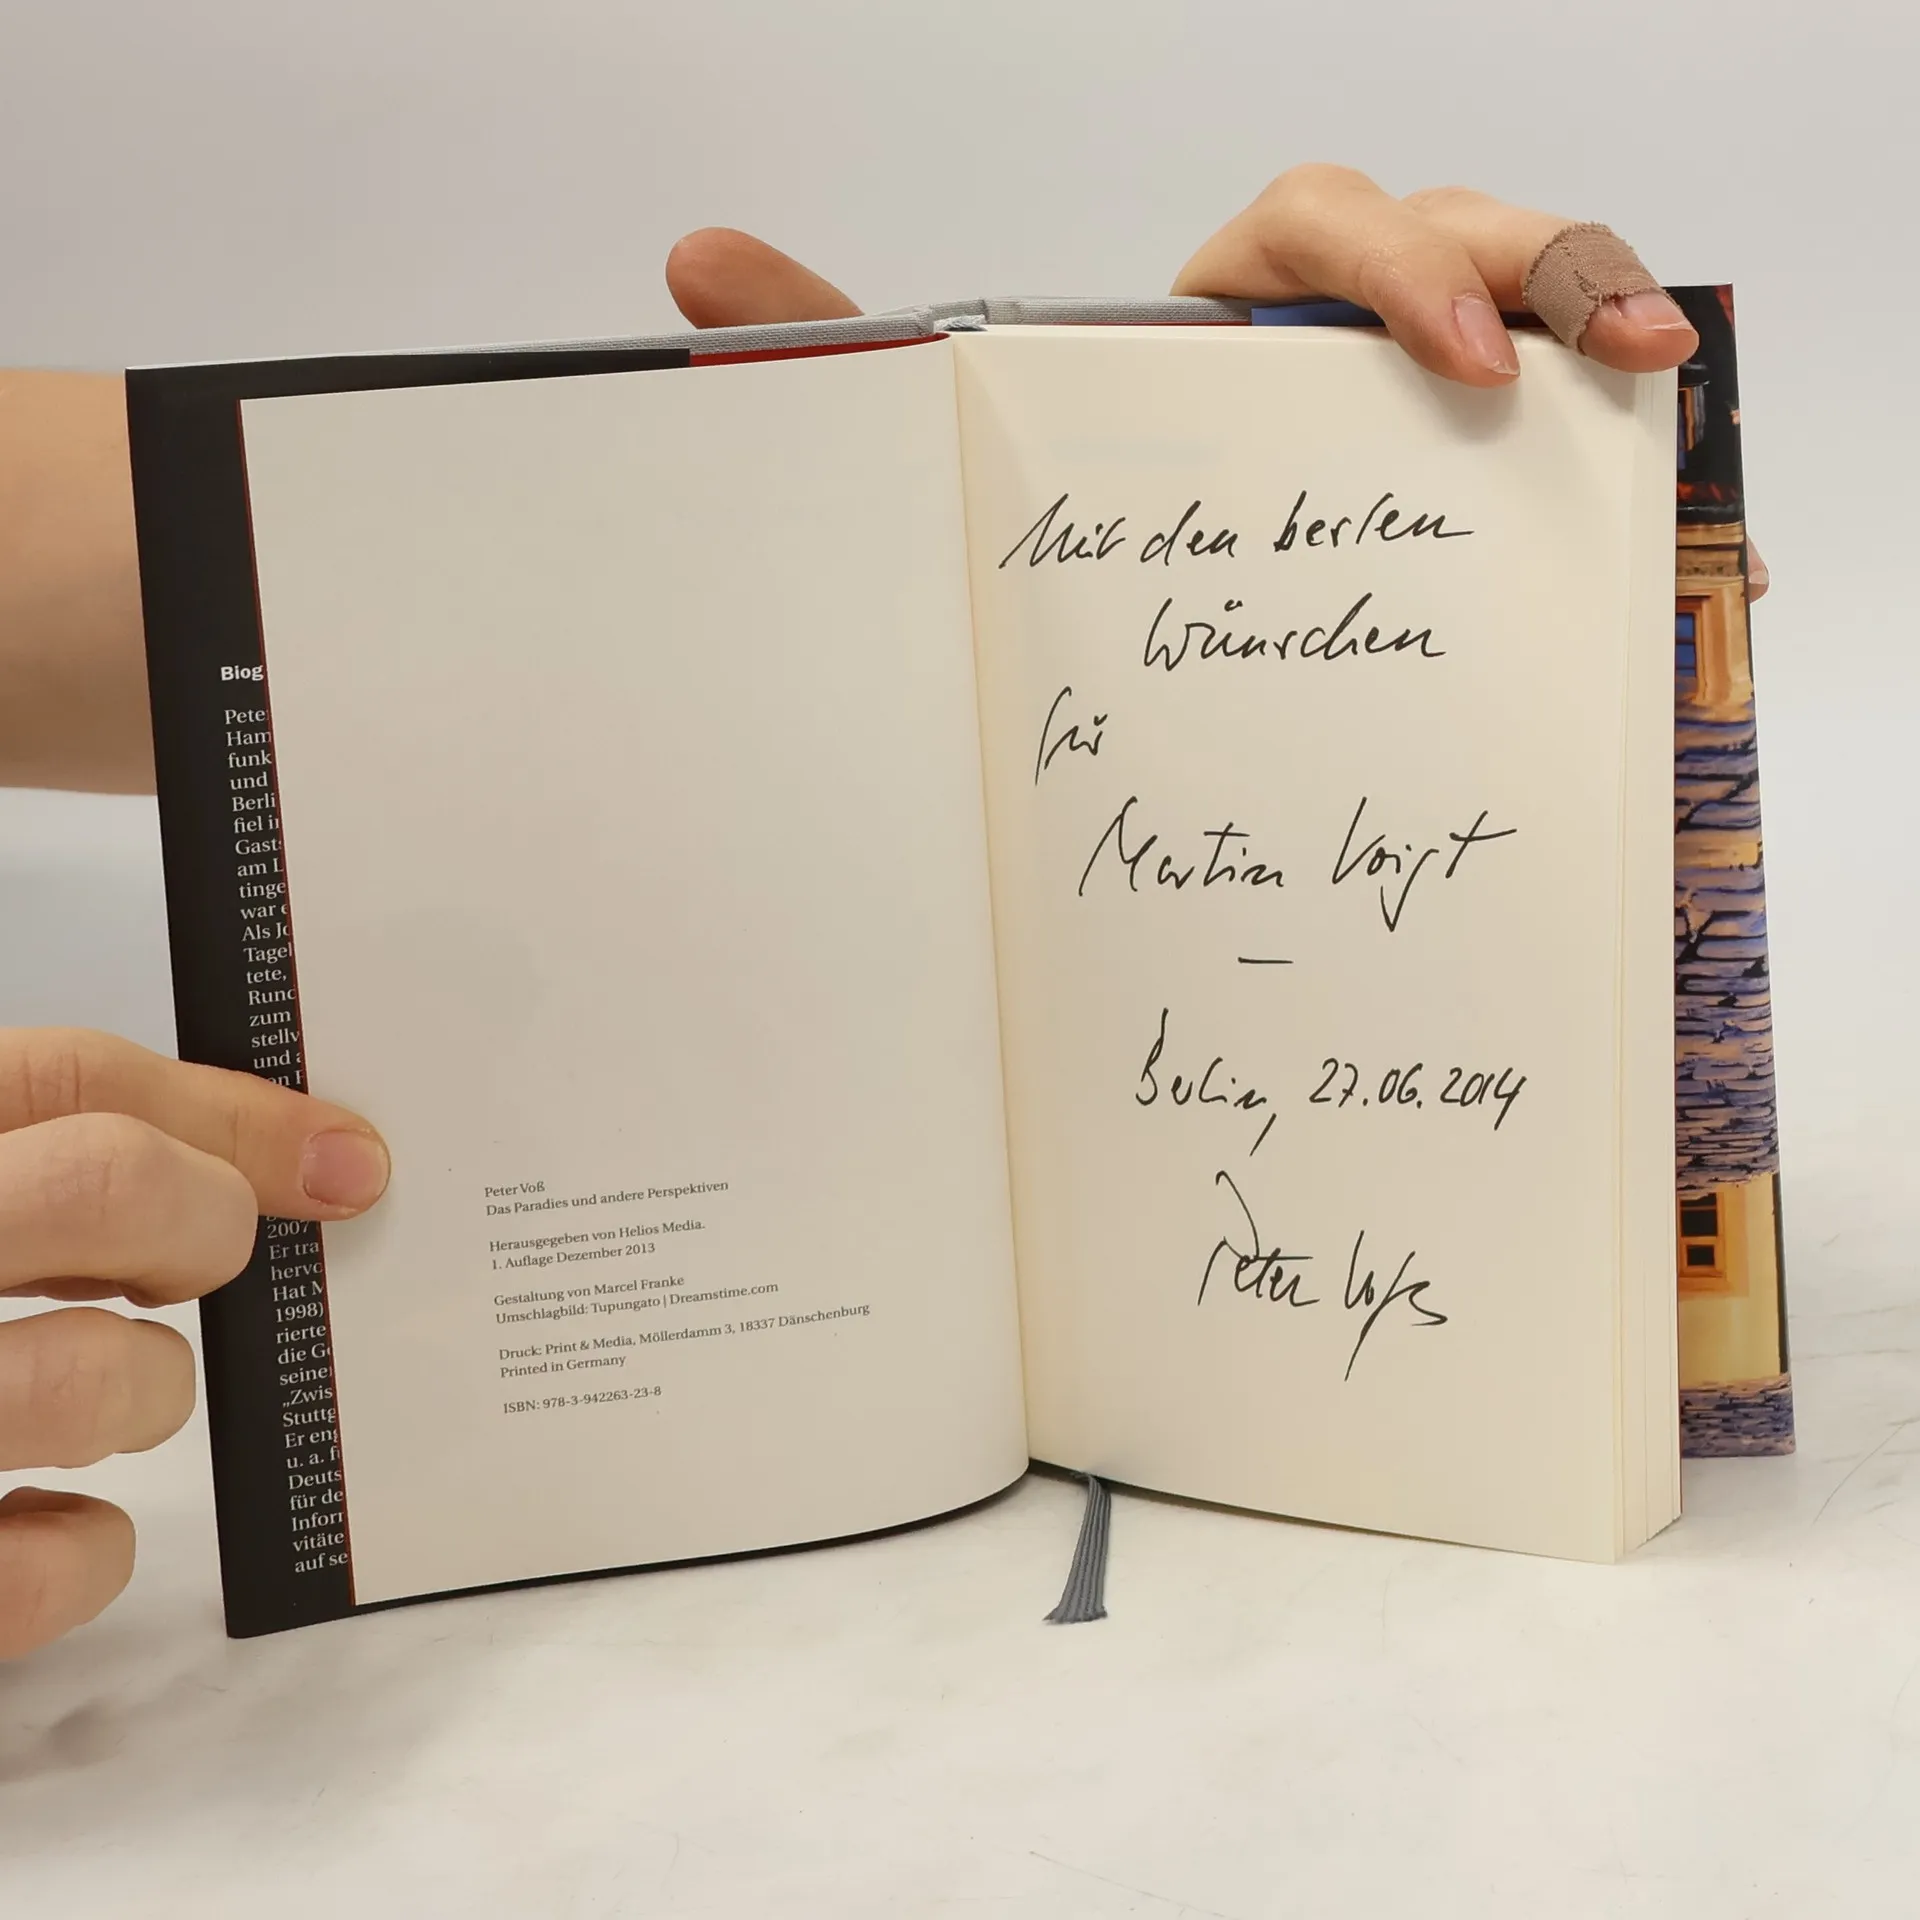 Biog
Pete
Ham
funk
und
Berli
fiel i
Gast
am L
tinge
war e
Als Jo
Tagel
tete,
Rund
zum
stellv
und a
en F
2007
Er tra
hervo
Hat M
1998)
rierte
die Ge
seine
„Zwis
Stuttg
Er eng
u. a. f
Deuts
für de
Infor
vitäte
auf se
Peter Voß
Das Paradies und andere Perspektiven
Herausgegeben von Helios Media.
1. Auflage Dezember 2013
Gestaltung von Marcel Franke
Umschlagbild: Tupungato | Dreamstime.com
Druck: Print & Media, Möllerdamm 3, 18337 Dänschenburg
Printed in Germany
ISBN: 978-3-942263-23-8
Mit den besten
Wünschen
für
Martin Voigt
—
Berlin, 27.06.2014
Peter Voß